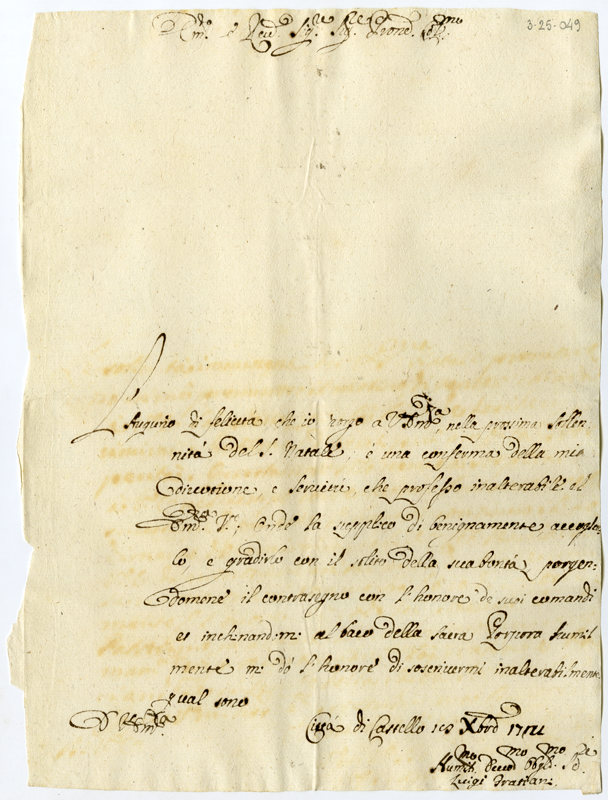 3-25-049
Em.º e Rev.º Sig.re Sig.re Pron.e Col.mo
L'Augurio di felicità, che io porgo a V. Em.za, nella prossima Solen-
nità del S. Natale, è una conferma della mia
divotione, e servitù, che professo inalterabile al
Em.za V.ra, Onde la supplico di benignamente accoglier-
lo, e gradirlo con il solito della sua bontà, porgen-
domene il contrasegno con l'honore de suoi comandi
et inchinandomi al bacio della Sacra Porpora humil
mente mi dò l'honore di soscrivermi inalterabilmente
qual sono
D. V. Em.za
Città di Castello Xbre
Humil.mo Devot.mo Obgl.mo
Luigi